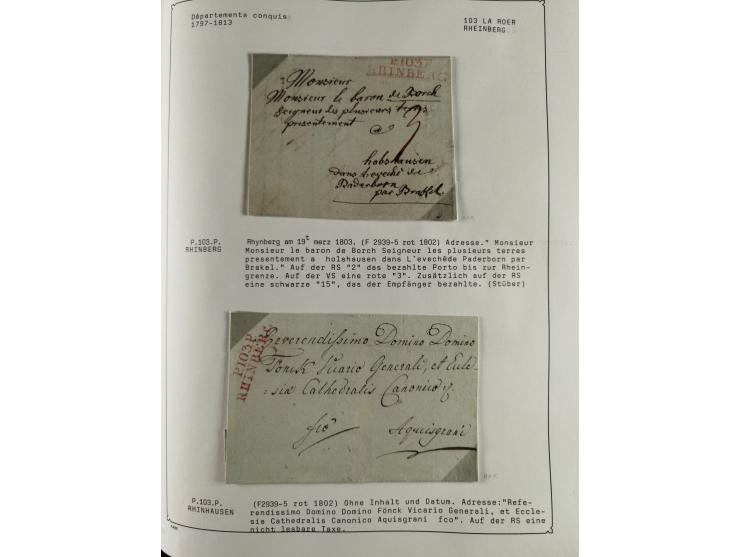 Départementa conquis:
1797-1813
103 LA ROER
RHEINBERG
P103P
RHINBERG
Monsieur
Monsieur le baron de Borch
Seigneur les plusieurs terres
presentement
3
holshausen
dans Leveché de
Paderborn
par Brakel.
P.103.P.
RHINBERG
Rhynberg am 19t merz 1803. (F 2939-5 rot 1802) Adresse." Monsieur
Monsieur le baron de Borch Seigneur les plusieurs terres
presentement a holshausen dans L'evechêde Paderborn par
Brakel." Auf der RS "2" das bezahlte Porto bis zur Rhein-
grenze. Auf der VS eine rote "3". Zusätzlich auf der RS
eine schwarze "15", das der Empfänger bezahlte. (Stüber)
P103P
RHINBERG
Reverendissimo Domino Domino
Fonck Vicario Generali, et Eccle-
=siæ Cathedralis Canonico
fco
Aquisgrani
P.103.P.
RHINHAUSEN
(F2939-5 rot 1802) Ohne Inhalt und Datum. Adresse:"Refe-
rendissimo Domino Domino Fönck Vicario Generali, et Eccle-
sia Cathedralis Canonico Aquisgrani fco". Auf der RS eine
nicht lesbare Taxe.